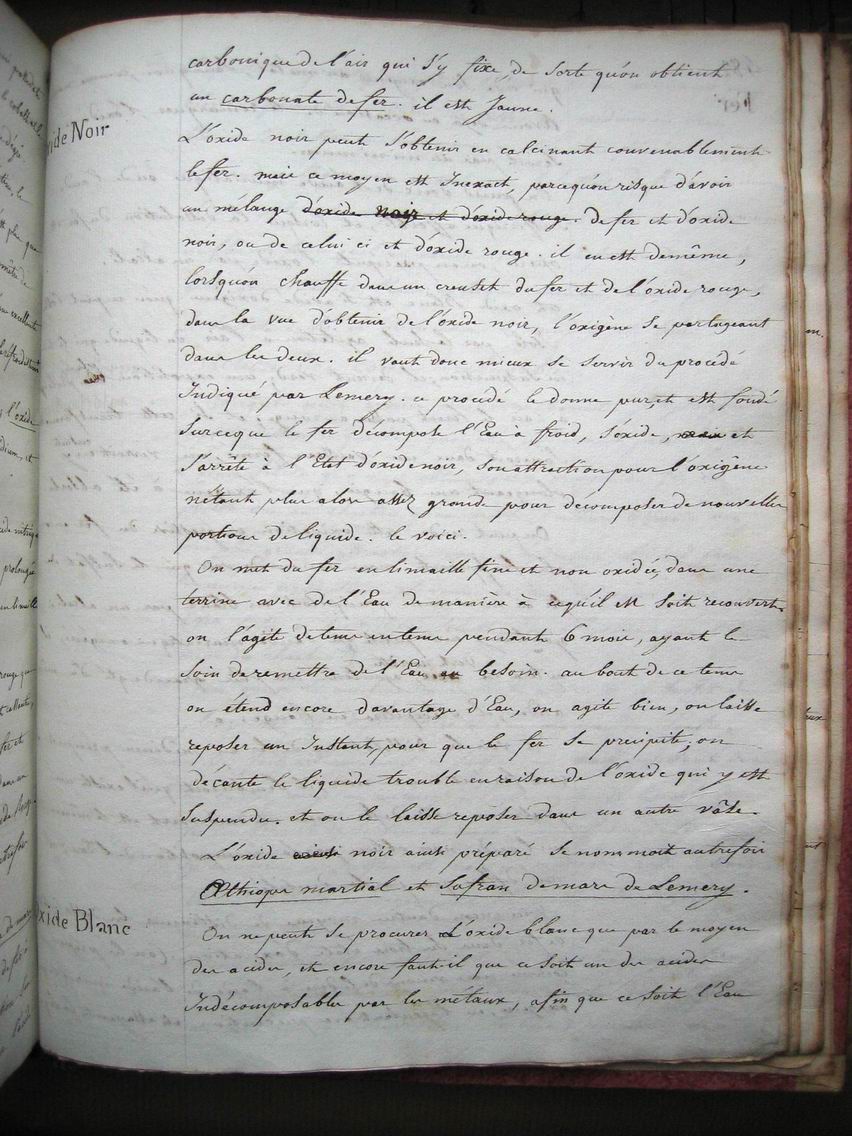 carbonique de l'air qui s'y fixe, de sorte qu'on obtient
un carbonate de fer. il est Jaune.
ide Noir
L'oxide noir peut s'obtenir en calcinant convenablement
le fer. mais ce moyen est Inexact, parcequ'on risque d'avoir
un mélange d'oxide noir et d'oxide rouge. de fer et d'oxide
noir, ou de celui ci et d'oxide rouge. il en est demême,
lorsqu'on chauffe dans un creuset du fer et de l'oxide rouge,
dans la vue d'obtenir de l'oxide noir, l'oxigène se partageant
dans les deux. il vaut donc mieux se servir du procédé
Indiqué par Lemery. ce procédé le donne pur, et est fondé
sur ceque le fer décompose l'Eau à froid, s'oxide, et
s'arrête à l'Etat d'oxide noir, son attraction pour l'oxigène
n'étant plus alors assez grande pour décomposer de nouvelles
portions de liquide. le voici.
On met du fer en limaille fine et non oxidée, dans une
terrine avec de l'Eau de manière à cequ'il en soit recouvert.
on l'agite detems entems pendant 6 mois, ayant le
soin de remettre de l'Eau au besoin. au bout de ce tems
on étend encore davantage d'Eau, on agite bien, on laisse
reposer un Instant, pour que le fer se précipite, on
décante le liquide trouble en raison de l'oxide qui y est
suspendu. et on le laisse reposer dans un autre vâse.
L'oxide noir ainsi préparé se nommoit autrefois
Œthiops martial et Safran demars de Lemery.
xide Blanc
On ne peut se procurer L'oxide blanc que par le moyen
des acides, et encore faut-il que ce soit un des acides
Indécomposables par les métaux, afin que ce soit l'Eau